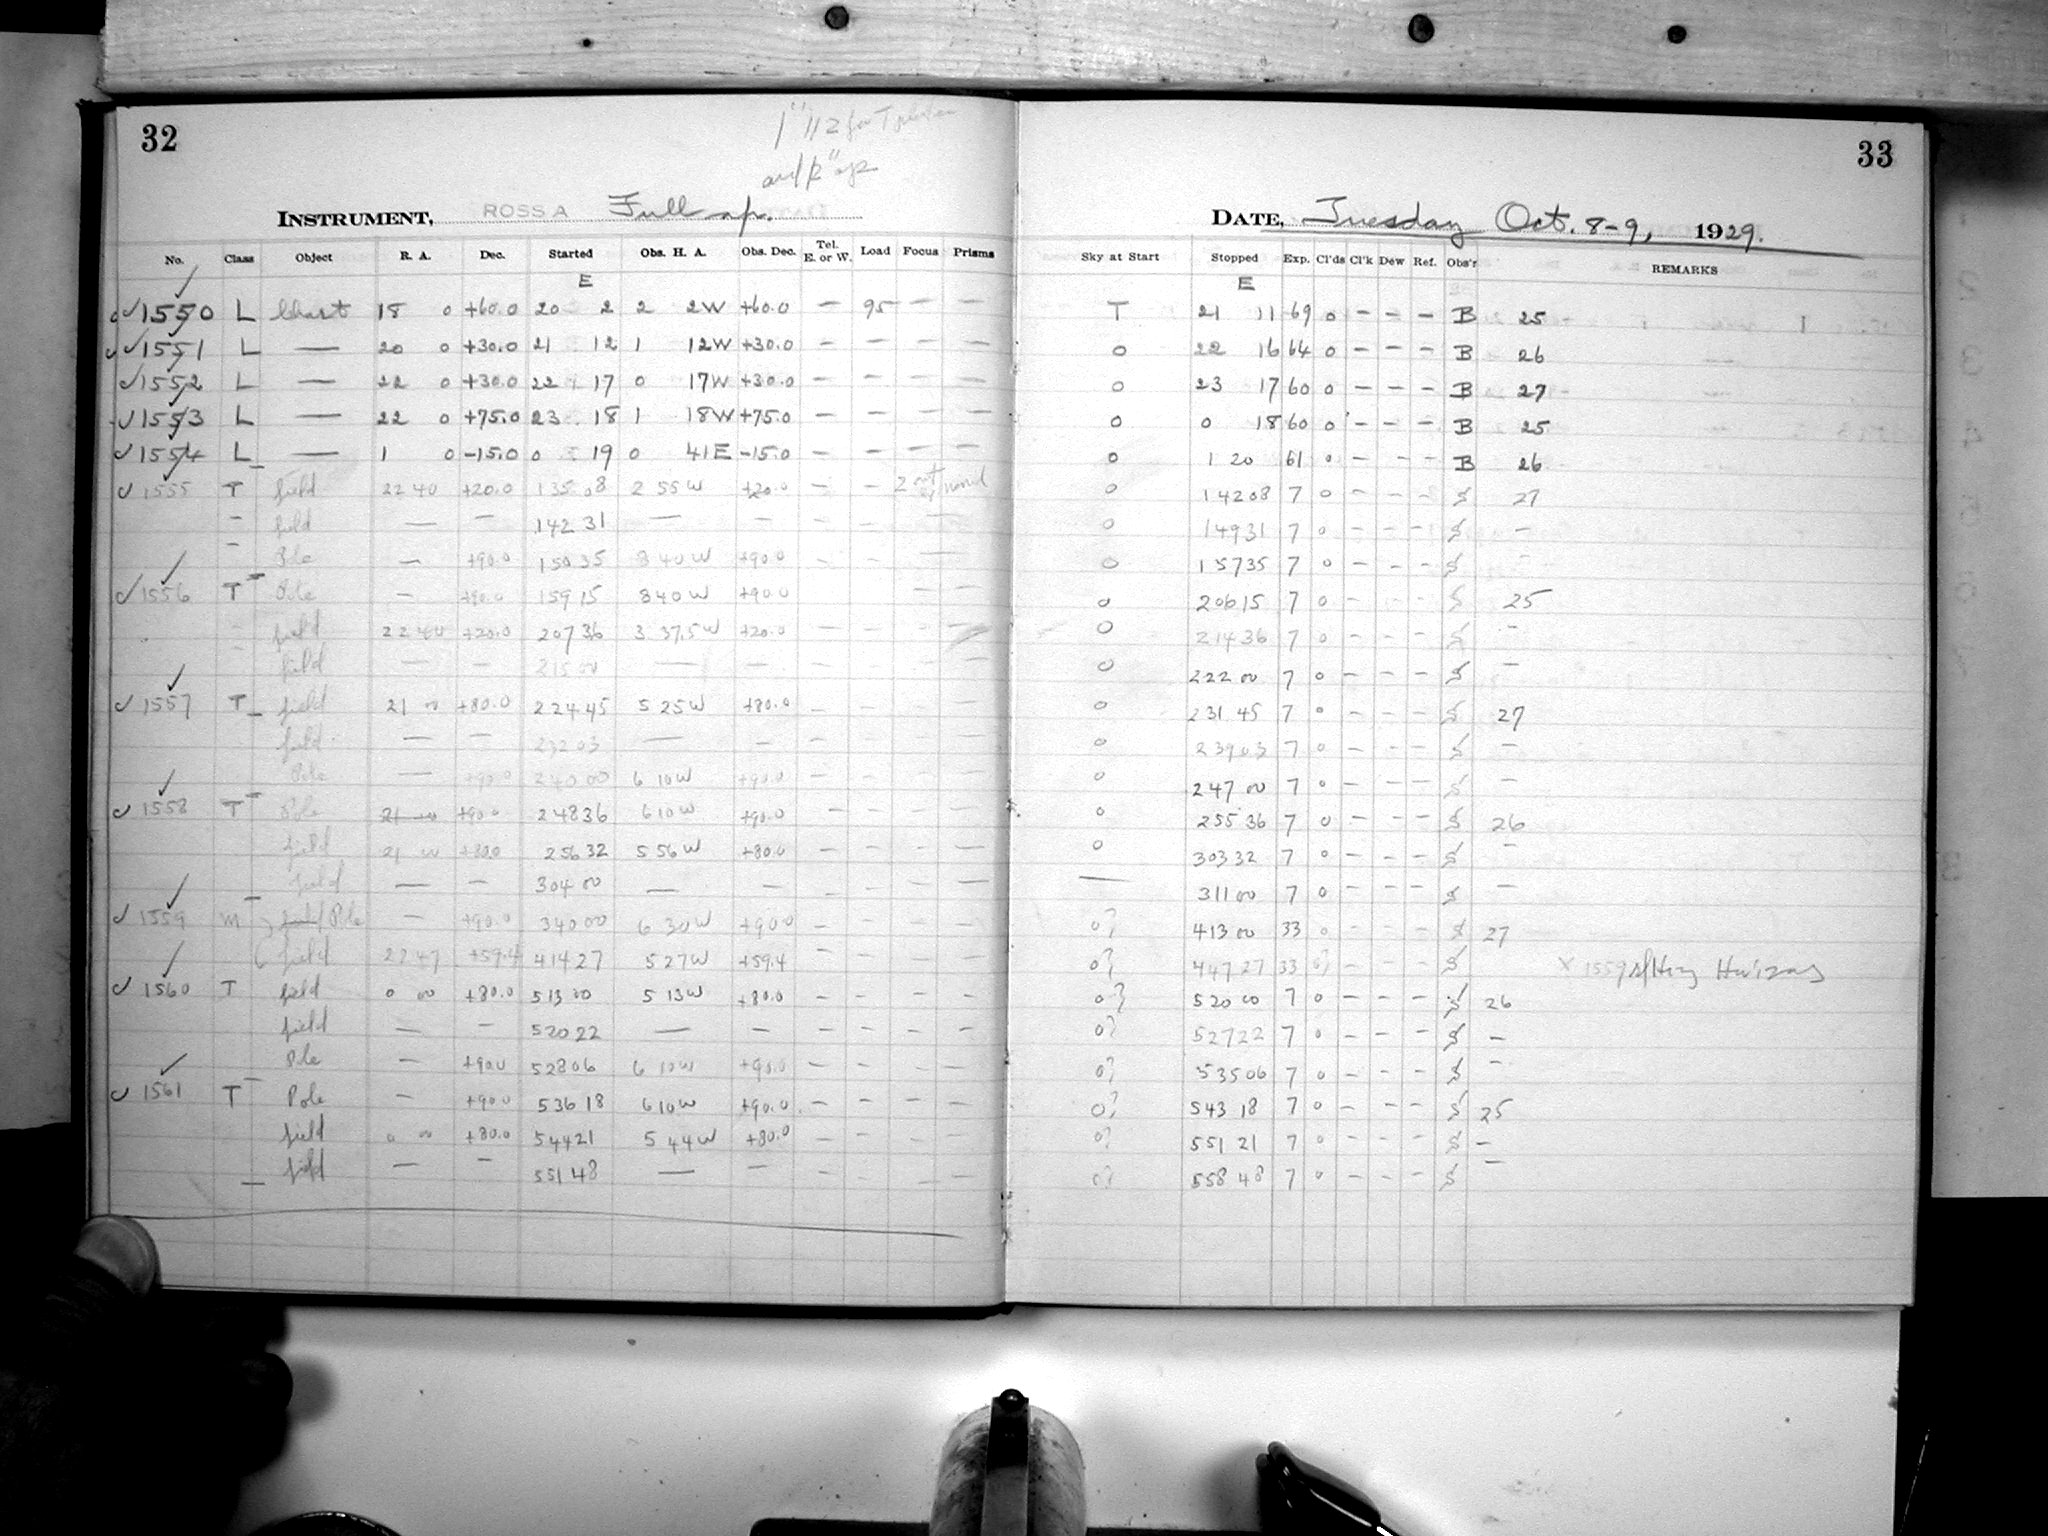 32
and 12" ap.
INSTRUMENT, ROSS A Full ap.
No. Class Object R. A. Dec. Started Obs. H. A. Obs. Dec. Tel. E. or W. Load Focus Prisms
E
✓1550 L Chart 18 0 +60.0 20 2 2 2W +60.0 — 95 — —
✓1551 L — 20 0 +30.0 21 12 1 12W +30.0 — — — —
✓1552 L — 22 0 +30.0 22 17 0 17W +30.0 — — — —
✓1553 L — 22 0 +75.0 23 18 1 18W +75.0 — — — —
✓1554 L — 1 0 -15.0 0 19 0 41E -15.0 — — — —
✓1555 T field 22 40 +20.0 1 35 08 2 55W +20.0 — — 2
— field — — 1 42 31 — — — — —
— Pole — +90.0 1 50 35 8 40W +90.0 — — —
✓1556 T Pole — +90.0 1 59 15 8 40W +90.0 — —
— field 22 40 +20.0 2 07 36 3 37.5W +20.0 — — — —
— field — — 2 15 00 — — — — — —
✓1557 T field 21 00 +80.0 2 24 45 5 25W +80.0 — — — —
field — — 2 32 03 — — — — — —
Pole — +90.0 2 40 00 6 10W +90.0 — — — —
✓1558 T Pole 21 00 +90.0 2 48 36 6 10W +90.0 — — — —
field 21 00 +80.0 2 56 32 5 56W +80.0 — — — —
field — — 3 04 00 — — — — — —
✓1559 M field Pole — +90.0 3 40 00 6 30W +90.0 — — — —
field 22 47 +59.4 4 14 27 5 27W +59.4 — — — —
✓1560 T field 0 00 +80.0 5 13 00 5 13W +80.0 — — — —
field — — 5 20 22 — — — — — —
Pole — +90.0 5 28 06 6 10W +90.0 — — — —
✓1561 T Pole — +90.0 5 36 18 6 10W +90.0 — — — —
field 0 00 +80.0 5 44 21 5 44W +80.0 — — — —
field — — 5 51 48 — — — — — —
33
DATE, Tuesday Oct. 8-9, 1929.
Sky at Start Stopped Exp. Cl'ds Cl'k Dew Ref. Obs'r REMARKS
E
T 21 11 69 0 — — — B 25
0 22 16 64 0 — — — B 26
0 23 17 60 0 — — — B 27
0 0 18 60 0 — — — B 25
0 1 20 61 0 — — — B 26
0 1 42 08 7 0 — — — S 27
0 1 49 31 7 0 — — — S —
0 1 57 35 7 0 — — — S —
0 2 06 15 7 0 — — — S 25
0 2 14 36 7 0 — — — S —
0 2 22 00 7 0 — — — S —
0 2 31 45 7 0 — — — S 27
0 2 39 03 7 0 — — — S —
0 2 47 00 7 0 — — — S —
0 2 55 36 7 0 — — — S 26
0 3 03 32 7 0 — — — S —
— 3 11 00 7 0 — — — S —
0? 4 13 00 33 0 — — — S 27
0? 4 47 27 33 0? — — — S x 1559
0? 5 20 00 7 0 — — — S 26
0? 5 27 22 7 0 — — — S —
0? 5 35 06 7 0 — — — S —
0? 5 43 18 7 0 — — — S 25
0? 5 51 21 7 0 — — — S —
0? 5 58 48 7 0 — — — S —